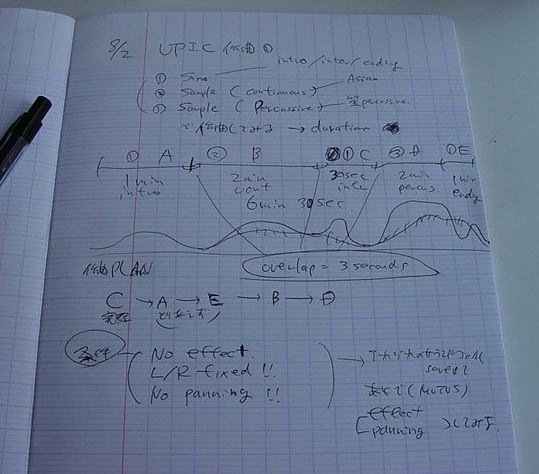 8/2 UPIC 作曲①
intro/inter/ending
① Sine
② Sample (continuous) Asian
③ Sample (Percussive) percussive.
で作曲してみる → duration
① A ② B ① C ③ D ① E
1 min intro 2 min cont 30sec inter 2 min percus. 1 min ending
6 min 30 sec.
overlap = 3 seconds
作曲PLAN
C → A → E → B → D
No effect.
L/R fixed !!
No panning !!
save
あとで (MOTUS)
effect
panning してみる.